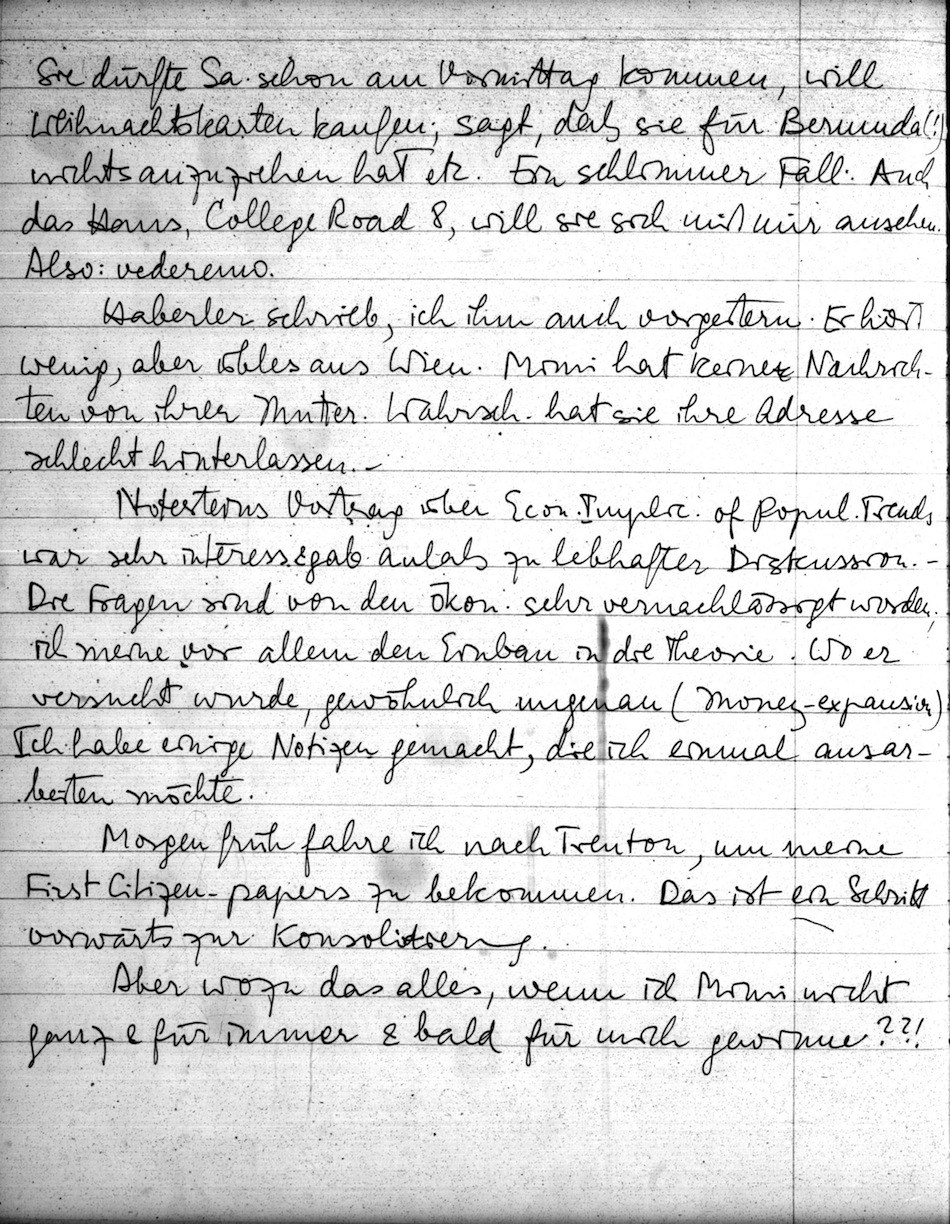 Sie dürfte Sa. schon am Vormittag kommen, will
Weihnachtskarten kaufen; sagt, daß sie für Bermuda (!)
nichts anzuziehen hat etc. Ein schlimmer Fall. Auch
das Haus, College Road 8, will sie sich mit mir ansehen.
Also: vederemo.
Haberler schrieb, ich ihm auch vorgestern. Er hört
wenig, aber übles aus Wien. Mimi hat keine Nachrich-
ten von ihrer Mutter. Wahrsch. hat sie ihre Adresse
schlecht hinterlassen. –
Notesteins Vortrag über Econ. Implic. of Popul. Trends
war sehr interess. & gab anlaß zu lebhafter Diskussion. –
Die Fragen sind von den Ökon. sehr vernachlässigt worden,
ich meine vor allem den Einbau in die Theorie. Wo er
versucht wurde, gewöhnlich ungenau (Money-expansion)
Ich habe einige Notizen gemacht, die ich einmal ausar-
beiten möchte.
Morgen früh fahre ich nach Trenton, um meine
First Citizen-papers zu bekommen. Das ist ein Schritt
vorwärts zur Konsolidierung.
Aber wozu das alles, wenn ich Mimi nicht
ganz & für immer & bald für mich gewinne??!